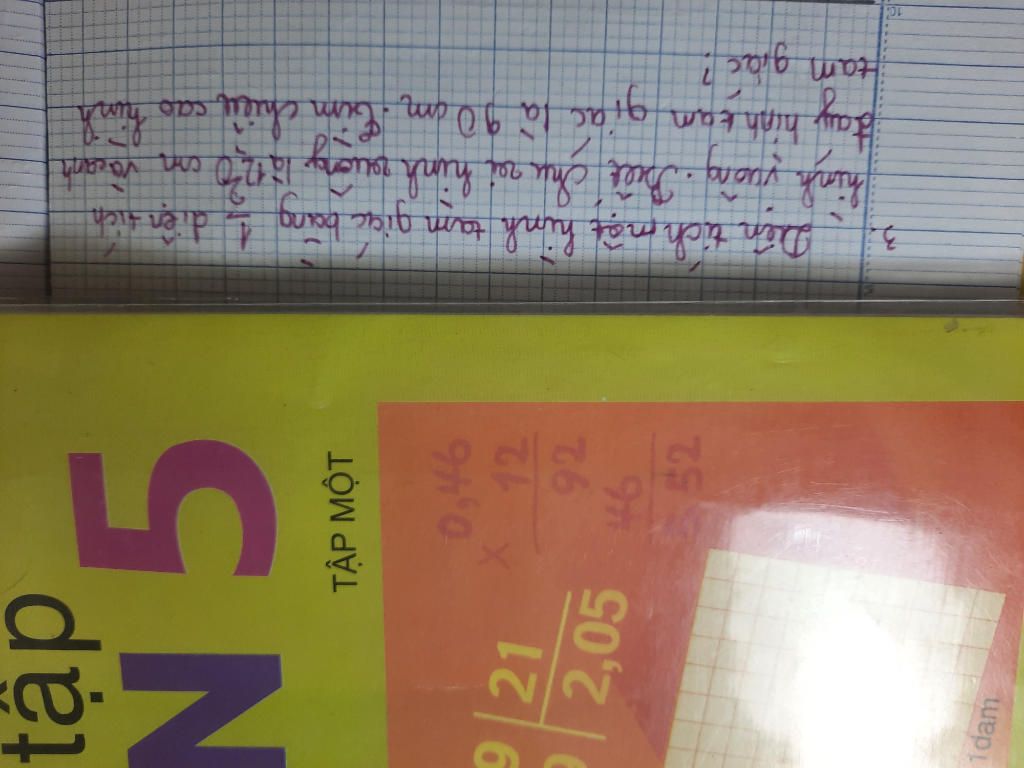 3. Diện tích một hình tam giác bằng 1/2 diện tích
hình vuông. Biết chu vi hình vuông là 120 cm và cạnh
đáy hình tam giác là 90 cm. tìm chiều cao hình
tam giác?
tập
N 5
TẬP MỘT
0,46
x 12
92
46
5,52
9 21
9 2,05
1dam